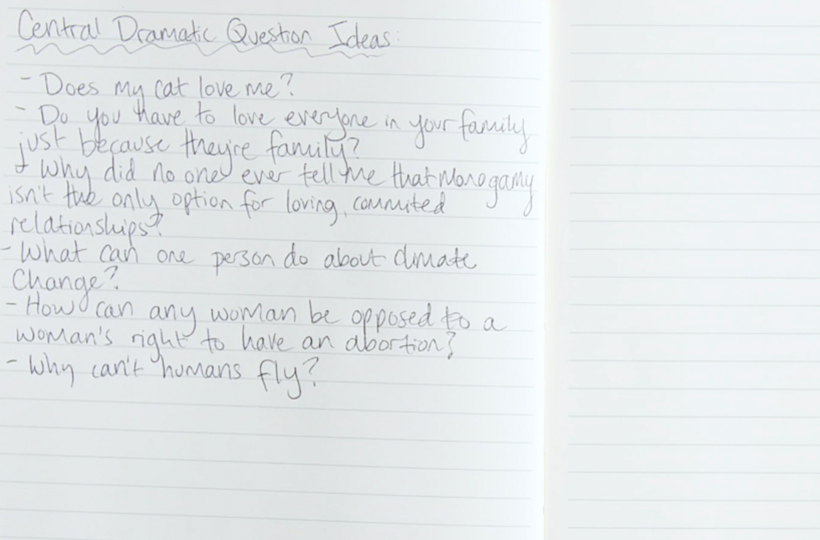 Central Dramatic Question Ideas:
- Does my cat love me?
- Do you have to love everyone in your family
just because they're family?
- Why did no one ever tell me that Monogamy
isn't the only option for loving, commited
relationships?
- What can one person do about climate
Change?
- How can any woman be opposed to a
woman's right to have an abortion?
- Why can't humans fly?